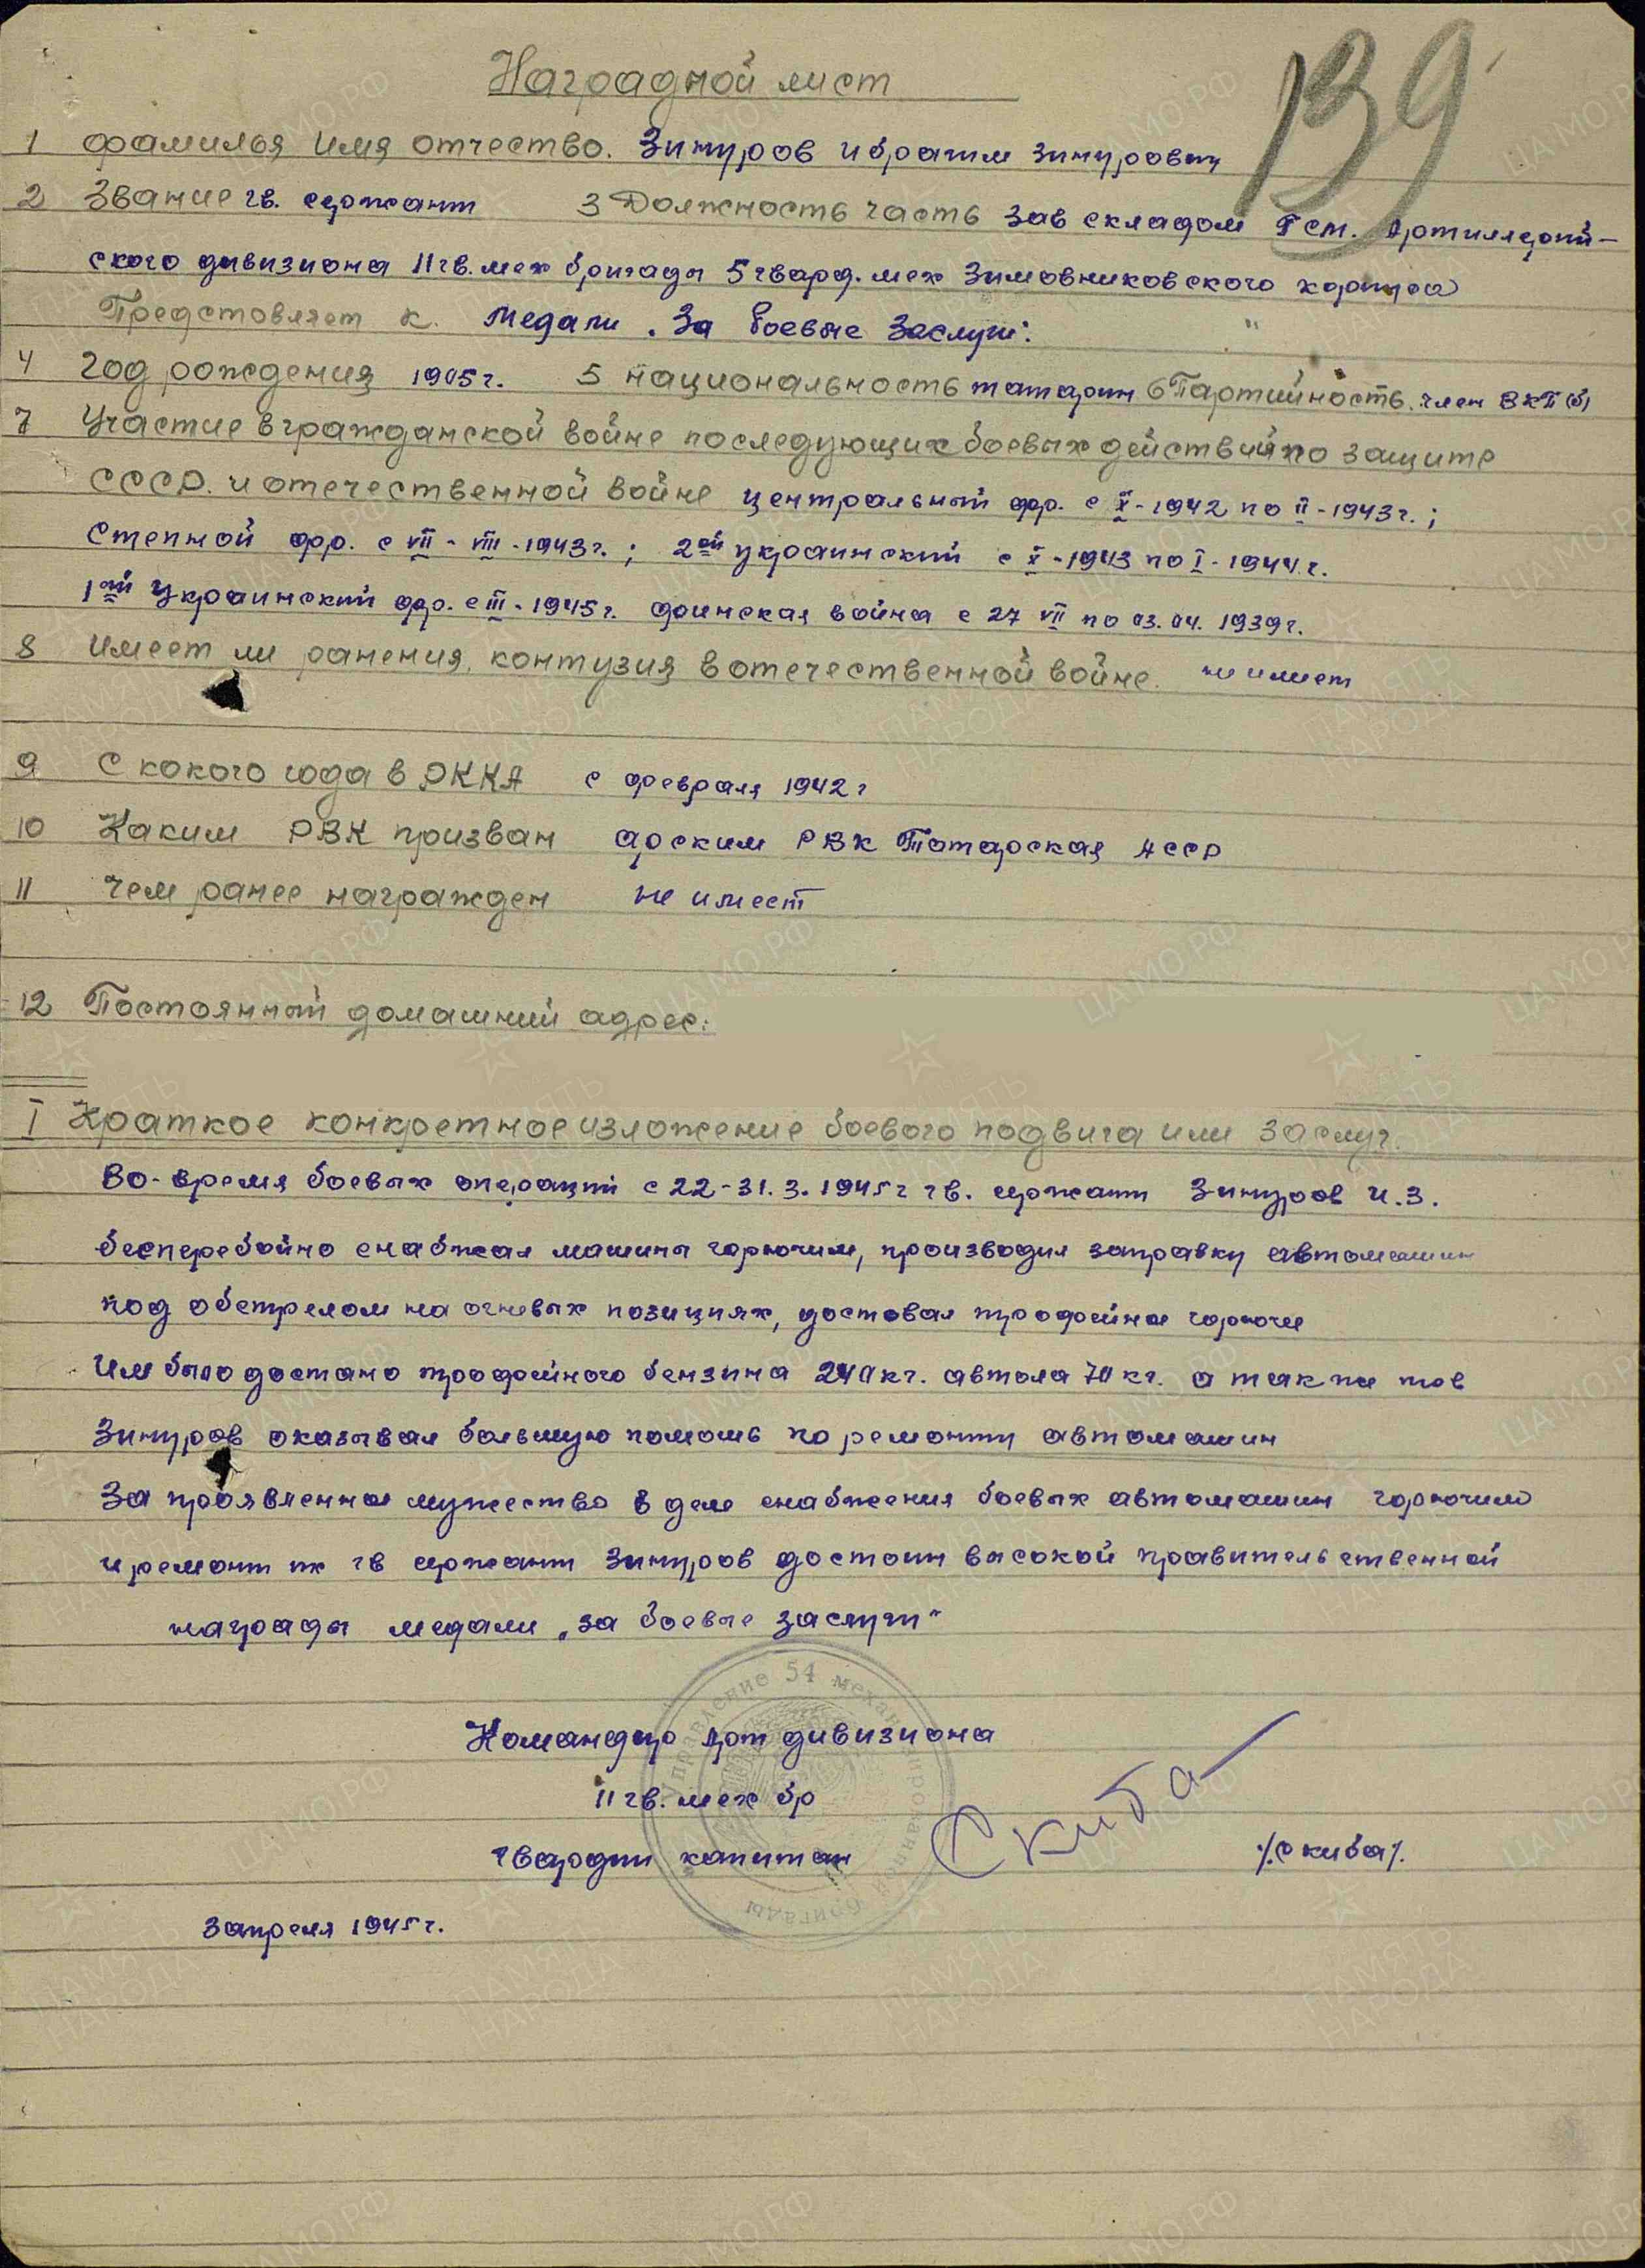 139
Наградной лист
1 фамилья имя отчество. Зинуров Ибрагим Зинурович
2 Звание гв. сержант 3 Должность часть зав складом Гсм. Артиллерий-
ского дивизиона 11 гв. мех бригады 5 гвард. мех Зимовниковского корпуса
Предстовляет к. Медали „За боевые Заслуги"
4 Год рождения 1905 г. 5 национальность татарин 6 Партийность. член ВКП(б)
7 Участие в гражданской войне последующих боевых действий по защите
СССР. и отечественной войне центральный фр. с X-1942 по II-1943 г.;
Степной фр. с VII-VIII-1943 г.; 2ой украинский с X-1943 по I-1944 г.
1ый Украинский фр. с III-1945 г. финская война с 27 VII по 03.04.1939 г.
8 Имеет ли ранения, контузия в отечественной войне. не имеет
9 С кокого года в РККА с февраля 1942 г
10 Каким РВК призван Арским РВК Татарская АССР
11 Чем ранее награжден не имеет
12 Постоянный домашний адрес:
I Краткое конкретное изложение боевого подвига или заслуг.
Во-время боевых операций с 22-31.3.1945 г гв. сержант Зинуров И.З.
бесперебойно снабжал машины горючим, производил заправку автомашин
под обстрелом на огневых позициях, доставал трофейное горючее
Им было достано трофейного бензина 240 кг. автола 70 кг. а также тов
Зинуров оказывал большую помошь по ремонту автомашин
За проявленное мужество в деле снабжения боевых автомашин горючим
и ремонт их гв сержант Зинуров достоин высокой правительственной
награды медали „за боевые заслуги"
Управление 54 механизированной бригады
Командир Арт дивизиона
11 гв. мех бр
Гвардии капитан Скиба /Скиба/.
3 апреля 1945 г.
ЦАМО.РФ
ПАМЯТЬ НАРОДА